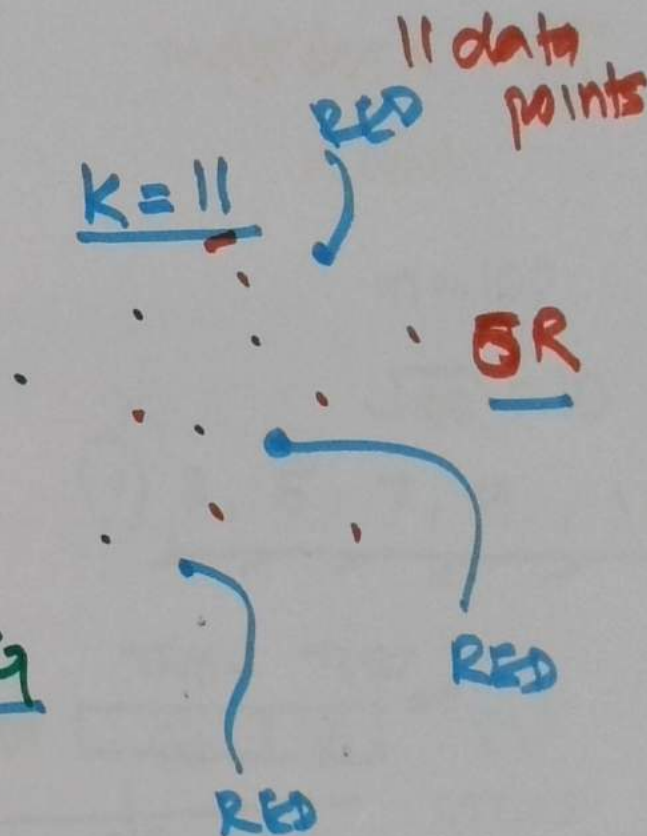 11 data
points
RED
K = 11
6R
RED
RED